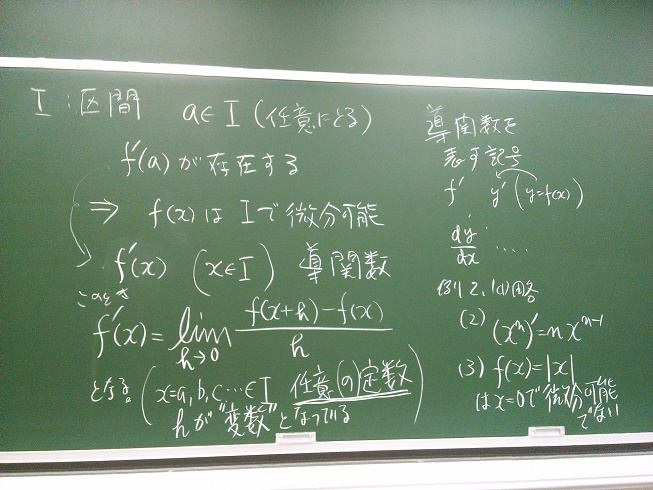 I : 区間 a∈I (任意にとる)
f'(a) が存在する
⇒ f(x) は I で微分可能
f'(x) (x∈I) 導関数
このとき
f'(x) = lim h→0 f(x+h)-f(x) / h
となる。( x=a,b,c…∈I 任意(の)定数
hが"変数"となっている )
導関数を
表す記号
f' y' (y=f(x))
dy/dx ....
例1.2, (1)略
(2) (xⁿ)'=nxⁿ⁻¹
(3) f(x)=|x|
はx=0で微分可能
でない